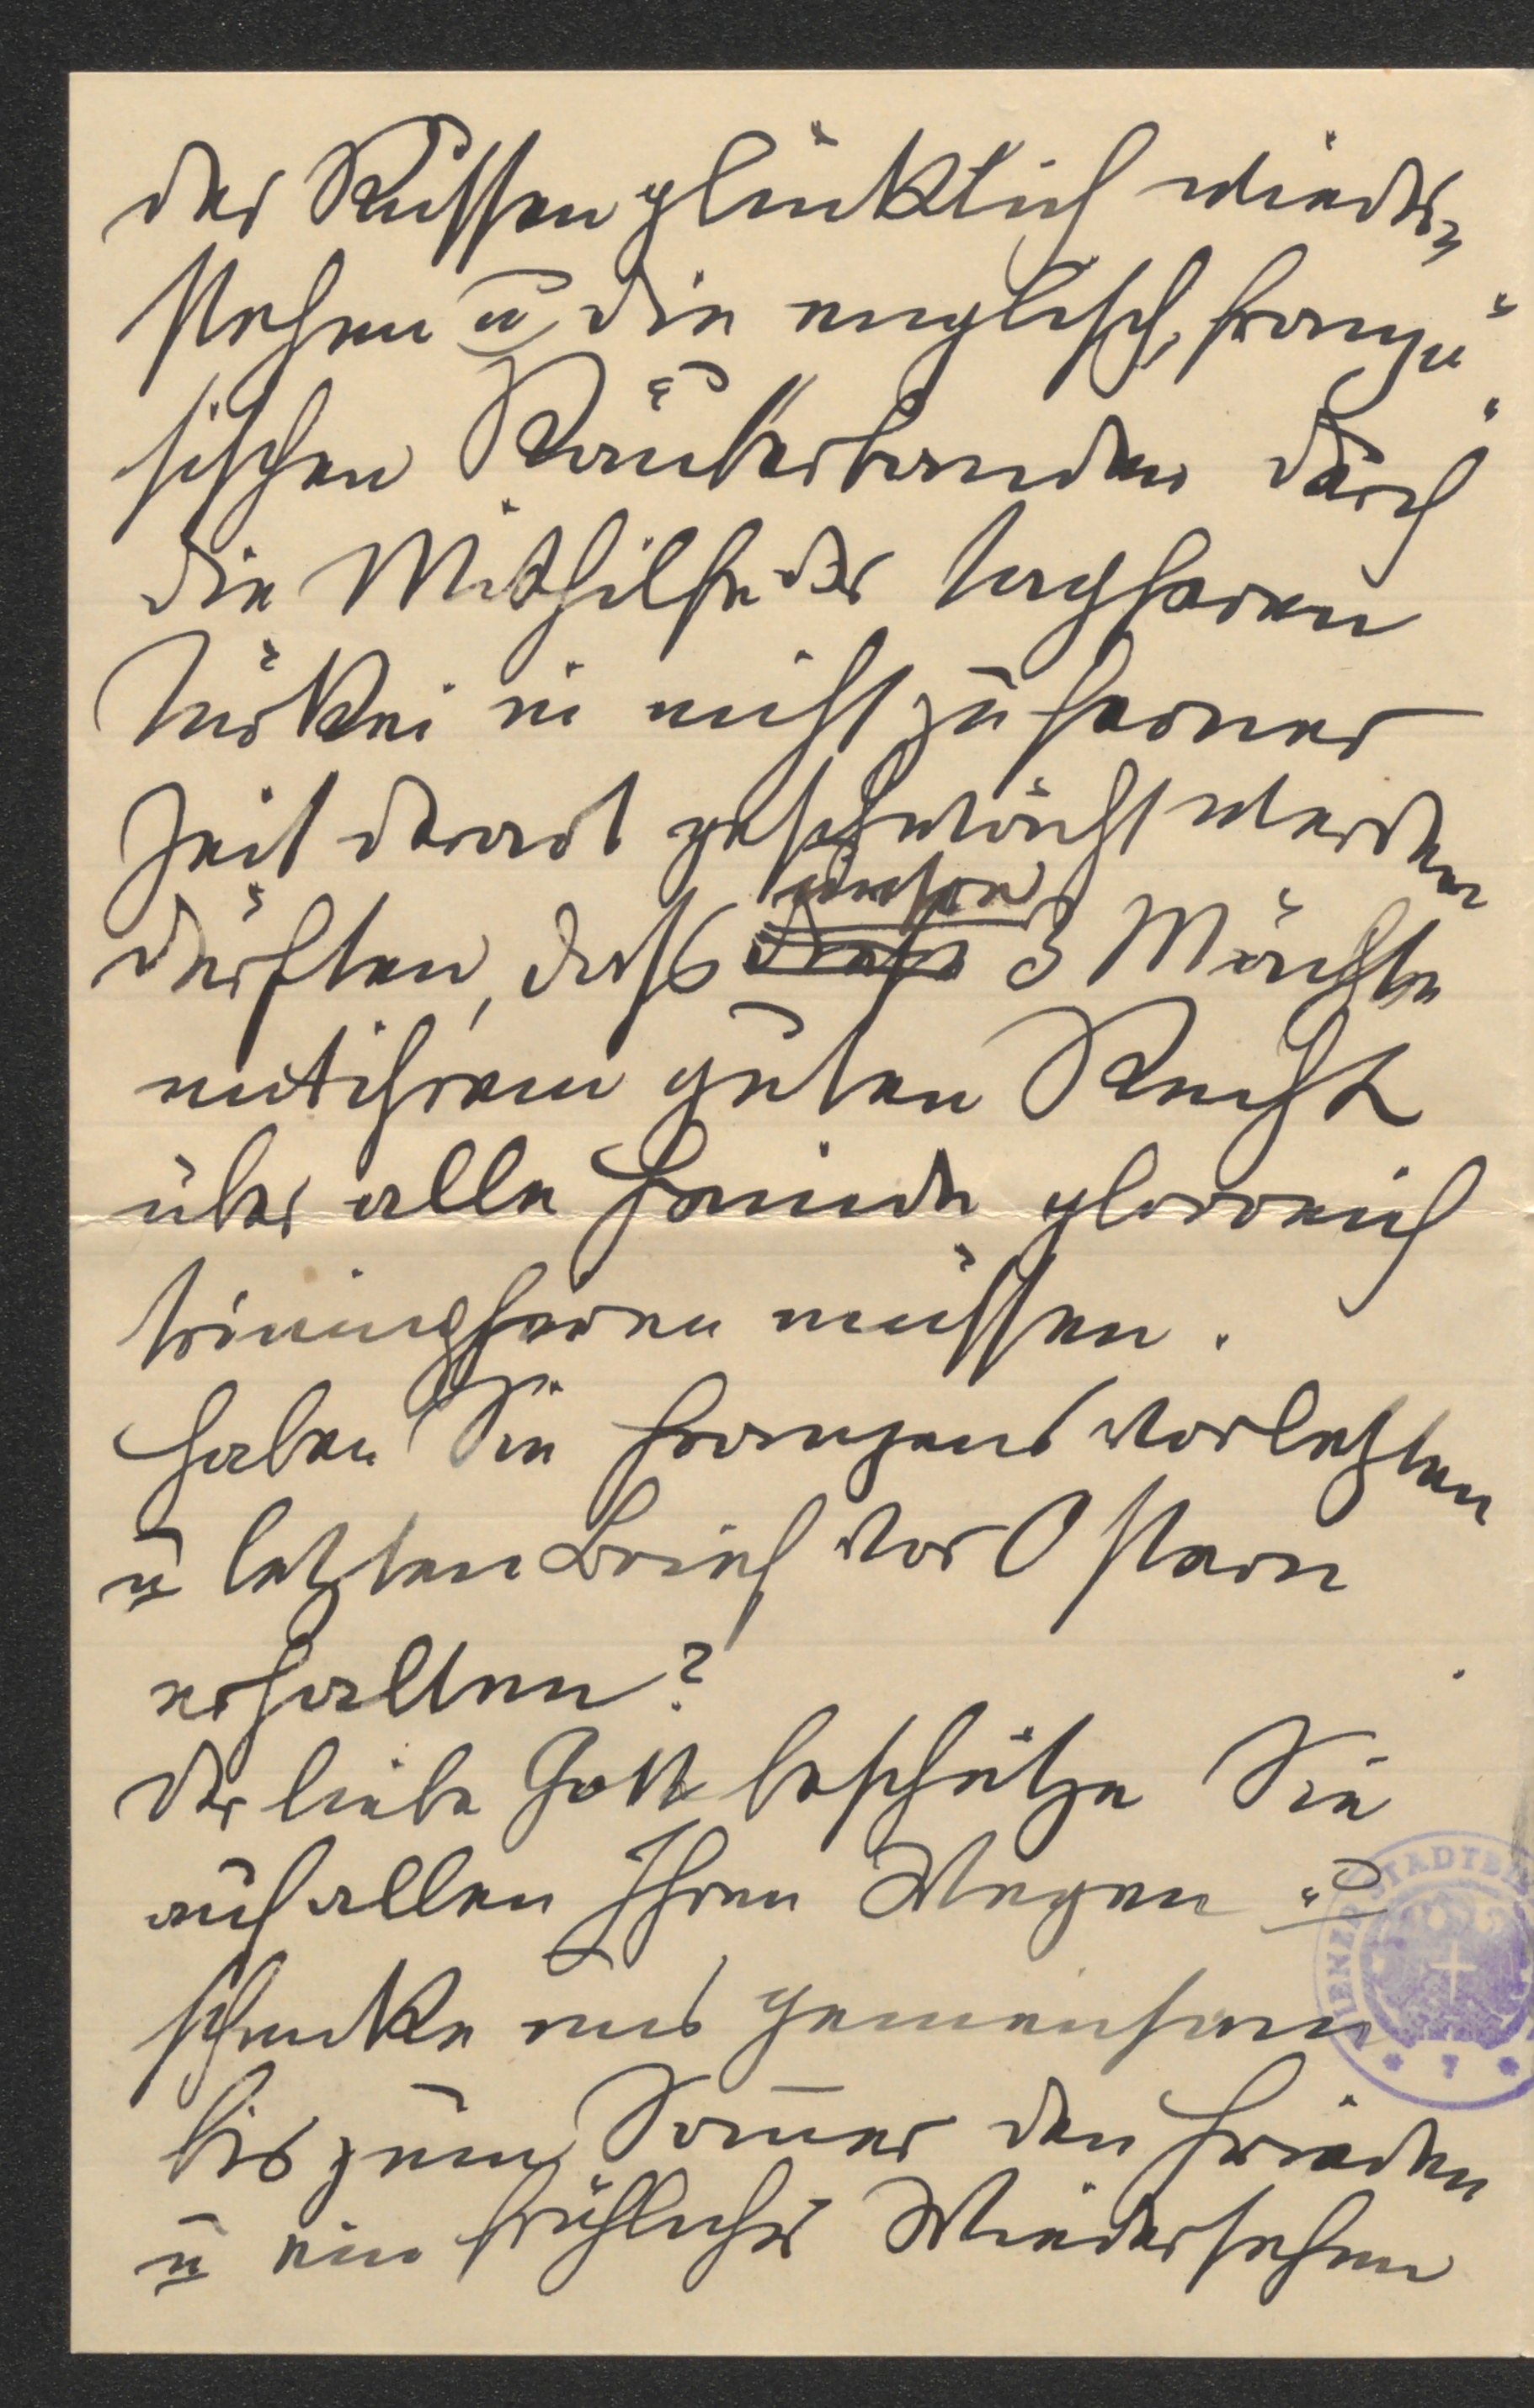 der Russen glücklich wieder„
stehen u die englisch, franzö„
sischen Räuberbanden durch
die Mithilfe der tapferen
Türkei in nicht zu ferner
Zeit derart geschwächt werden
dürften, dass unsere
3 Mächte
mit ihrem guten Recht
über alle Feinde glorreich
triumpfieren müssen.
Haben Sie Franzens vorletzten
u letzten Brief vor Ostern
erhalten?
Der liebe Gott beschütze Sie
auf allen Ihren Wegen u
schenke uns gemeinsam
bis zum Som̄er den Frieden
u ein fröhliches Wiedersehen
WIENER STADTB
* 7 *